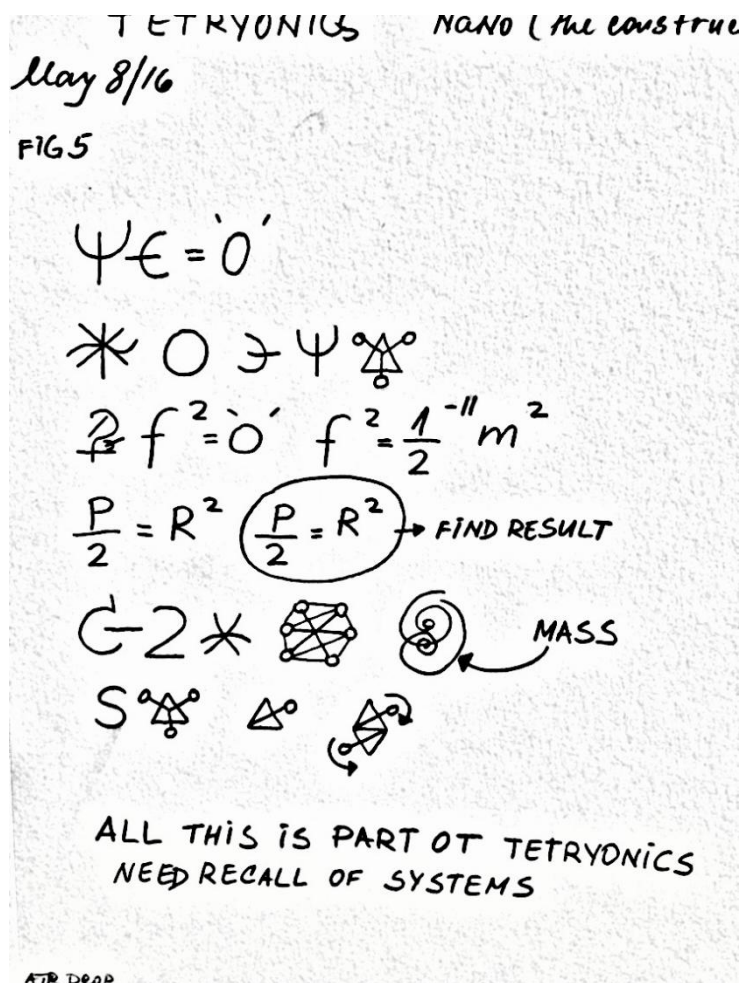 TETRYONICS NaNo (the construc
May 8/16
FIG 5
Ψ∈ = 'O'
O ∋ Ψ
f² = 'O' f² = 1/2 ⁻¹¹ m²
P/2 = R² P/2 = R² → FIND RESULT
2 MASS
S
ALL THIS IS PART OT TETRYONICS
NEED RECALL OF SYSTEMS
AIR DROP